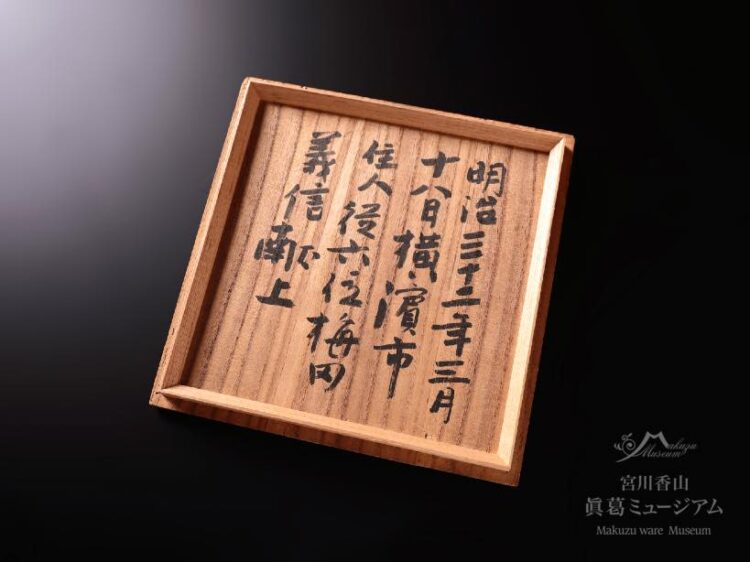 明治三十二年三月
十八日横濱市
住人従六位梅田
義信献上
Makuzu
Museum
宮川香山
眞葛ミュージアム
Makuzu ware Museum